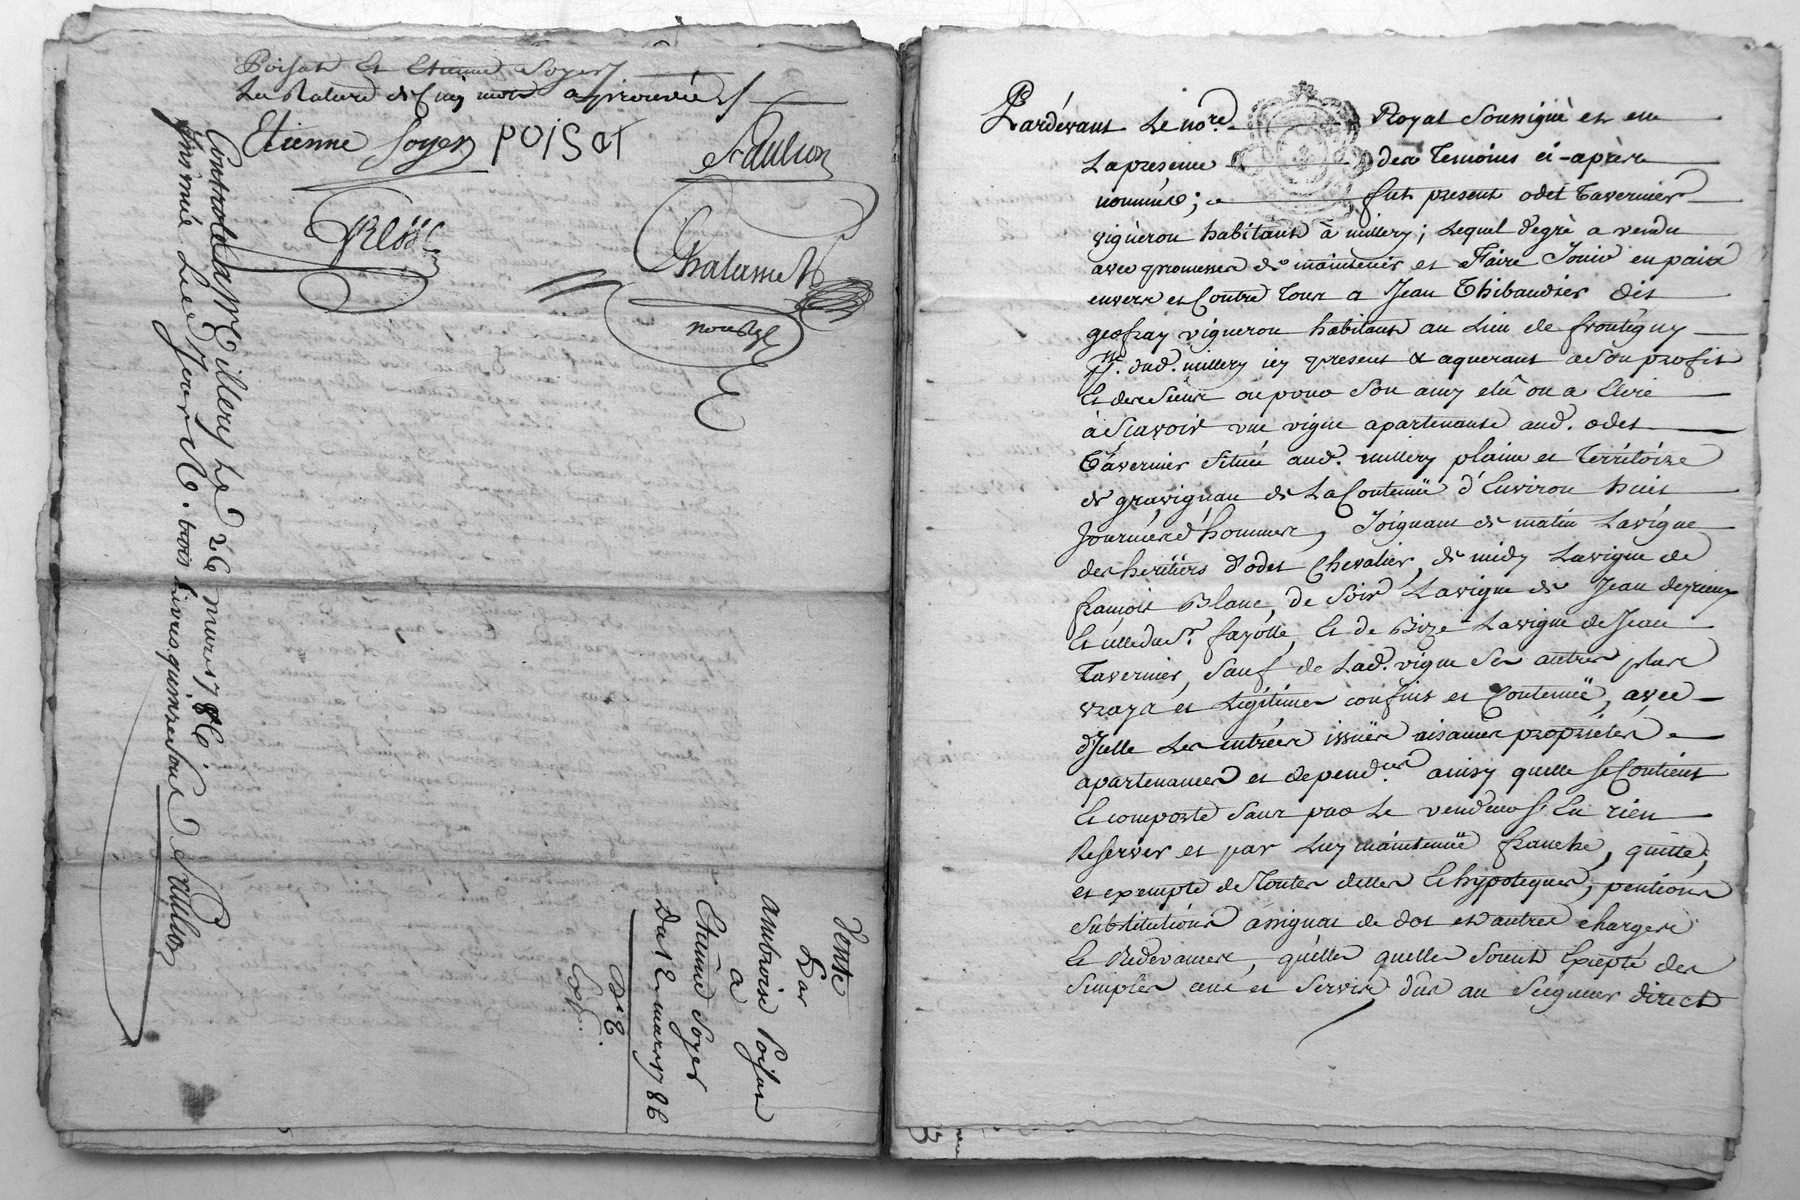 Poisat Et Etienne Soyer
La Rature de Cinq mots aprouvée
Etienne Soyer POISAT
Chalumet
notre
Controlé à Millery Le 26 mars 1786.
Insinué Led. Jour R. trois Livres quinze sous
Vente
Par
ambroise Poisat
a
Etienne Soyer
Du 12 mars 1786
Pardevant Le no.re Royal Soussigné et en
La presence des Temoins ci-après
nommés; fut present odet Tavernier
vigneron habitant à millery; Lequel degré a vendu
avec promesse de maintenir et Faire Jouir en paix
envers et Contre Tous a Jean Thibaudier dit
geofray vigneron habitant au Lieu de frontigny
P.sse dud. millery icy present & aquerant a Son profit
Et des Siens ou pour Son amy elû ou a Elire
à Scavoir une vigne apartenante aud. odet
Tavernier Située aud. millery plaine et Térritóire
de gravignan de La Contenüe d'Environ huit
Journées d'hommes, Joignant de matin La vigne
des heritiers d'odet Chevalier, de midy La vigne de
françois Blanc, de Soir La vigne de Jean deprieux
Et celle du Sr. fayolle, Et de Bize La vigne de Jean
Tavernier, Sauf de Lad. vigne Ses autres plus
vrays et Légitimes confins et Contenüe, avec
d'Icelle Les entrées issües aisances propriétés
apartenances et depend.ces ainsy quelle Se Contient
Et comporte Sans par Le vendeur S'En rien
Reserver et par Luy maintenüe franche, quitte,
et exempte de Toutes dettes Et hypoteques, pentions
Substitutions assignat de dot et d'autres charges
Et Redevances, quélles quelles Soient Excepté des
Simples cens et Servis dûs au Seigneur direct